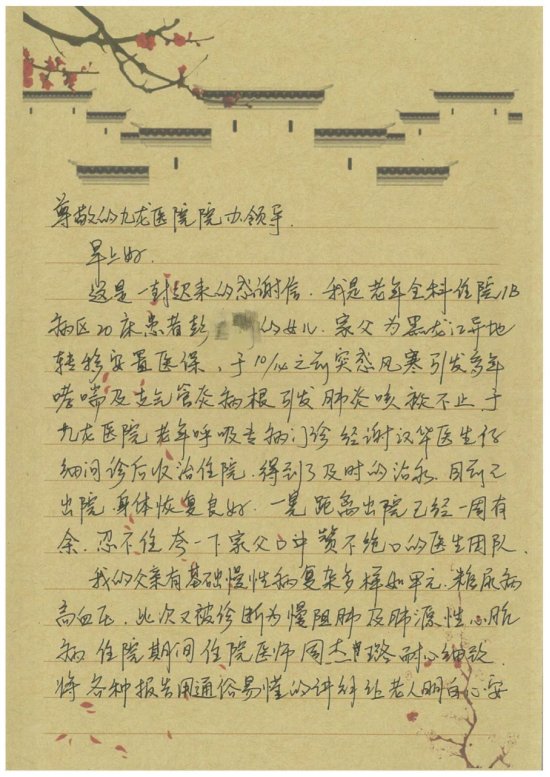 尊敬的九龙医院院办领导.
早上好.
这是一封迟来的感谢信. 我是老年全科住院1B
病区20床患者彭 的女儿. 家父为黑龙江异地
转移安置医保, 于10/14之前突感风寒引发多年
哮喘及支气管炎病根引发肺炎咳嗽不止于
九龙医院老年呼吸专病门诊经谢汉华医生仔
细问诊后收治住院. 得到了及时的治疗. 目前已
出院 身体恢复良好. 一晃距离出院已经一周有
余. 忍不住夸一下家父口中赞不绝口的医生团队.
我的父亲有基础慢性病复杂多样如甲亢. 糖尿病
高血压. 此次又被诊断为慢阻肺及肺源性心脏
病 住院期间住院医师周杰 璐耐心细致.
将各种报告用通俗易懂的讲解让老人明白心安